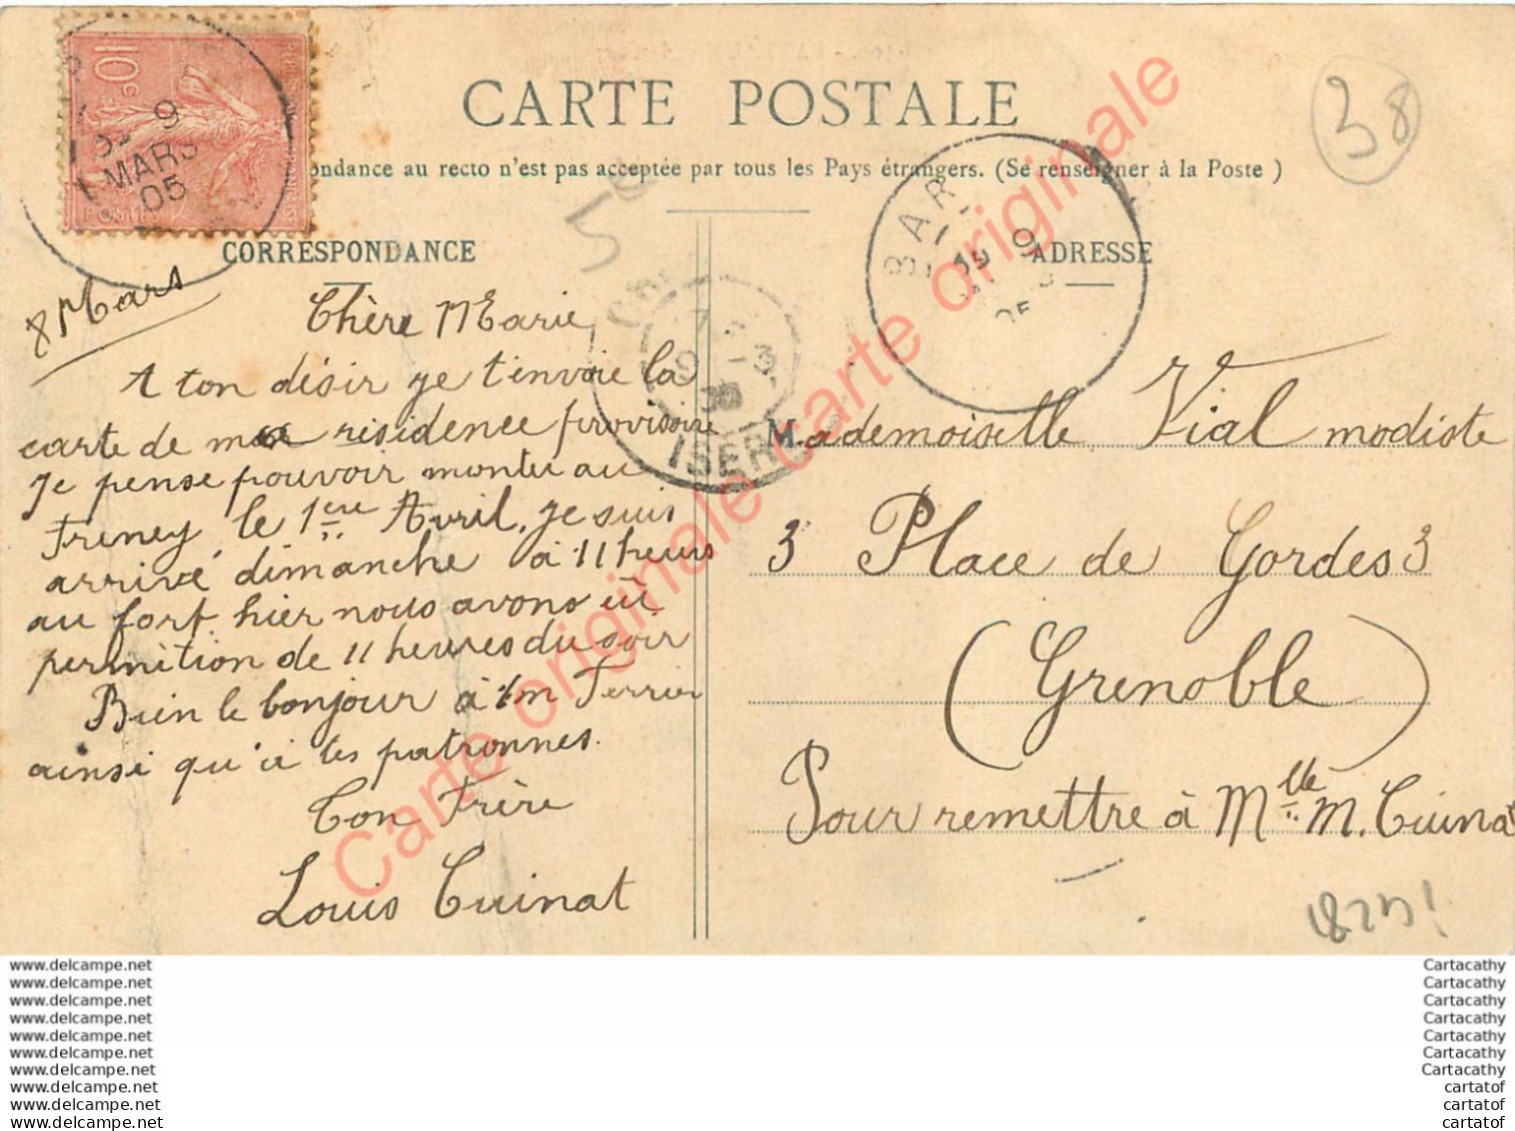 CARTE POSTALE
ondance au recto n'est pas acceptée par tous les Pays étrangers. (Se renseigner à la Poste )
38
CORRESPONDANCE
ADRESSE
9
MARS
05
POSTES
BAR
9
ISÈRE
8 Mars
Chère Marie
A ton désir je t'envoie la
carte de ma residence provisoire
Je pense pouvoir monter au
Freney le 1ere Avril, je suis
arrivé dimanche à 11 heurs
au fort hier nous avons eû
permition de 11 heures du soir
Bien le bonjour à Terrier
ainsi qu'à les patronnes.
Ton Frère
Louis Cuinat
Mademoiselle Vial modiste
3 Place de Gordes 3
(Grenoble)
Pour remettre à Mlle M. Cuinat
Carte originale carte originale carte originale
www.delcampe.net
www.delcampe.net
www.delcampe.net
www.delcampe.net
www.delcampe.net
www.delcampe.net
www.delcampe.net
www.delcampe.net
www.delcampe.net
www.delcampe.net
Cartacathy
Cartacathy
Cartacathy
Cartacathy
Cartacathy
Cartacathy
Cartacathy
cartatof
cartatof
cartatof